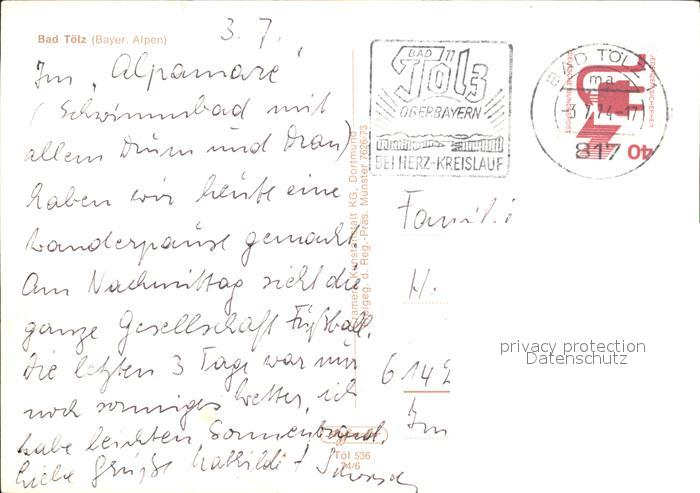 Bad Tölz (Bayer. Alpen)
3. 7.
Im "Alpamare"
(Schwimmbad mit
allem Drum und Dran)
haben wir heute eine
Wanderpause gemacht.
Am Nachmittag sieht die
ganze Gesellschaft Fußball.
Die letzten 3 Tage war nur
noch sonniges Wetter, ich
habe leichten Sonnenbrand.
Liebe Grüße Mathilde +
Kunstanstalt KG, Dortmund
freigeg. d. Reg.-Präs. Münster 7626/73
Töl 536
74/6
BAD TÖLZ
OBERBAYERN
BEI HERZ-KREISLAUF
BAD TÖLZ 1
ma
-3.7.74-17
817
DEUTSCHE BUNDESPOST
40
Familie
H.
614
Im
privacy protection
Datenschutz